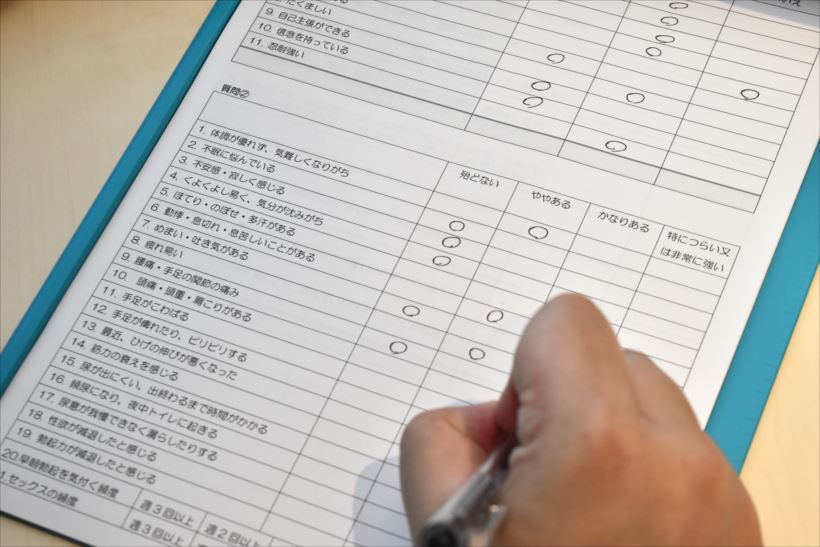 たくましい
9. 自己主張ができる
10. 信念を持っている
11. 忍耐強い
質問②
殆どない ややある かなりある 特につらい又は非常に強い
1. 体調が優れず、気難しくなりがち
2. 不眠に悩んでいる
3. 不安感・寂しく感じる
4. くよくよし易く、気分が沈みがち
5. ほてり・のぼせ・多汗がある
6. 動悸・息切れ・息苦しいことがある
7. めまい・吐き気がある
8. 疲れ易い
9. 腰痛・手足の関節の痛み
10. 頭痛・頭重・肩こりがある
11. 手足がこわばる
12. 手足が痺れたり、ピリピリする
13. 最近、ひげの伸びが悪くなった
14. 筋力の衰えを感じる
15. 尿が出にくい、出終わるまで時間がかかる
16. 頻尿になり、夜中トイレに起きる
17. 尿意が我慢できなく漏らしたりする
18. 性欲が減退したと感じる
19. 勃起力が減退したと感じる
20.早朝勃起を気付く頻度 週3回以上 週2回以上
1.セックスの頻度 週3回以上